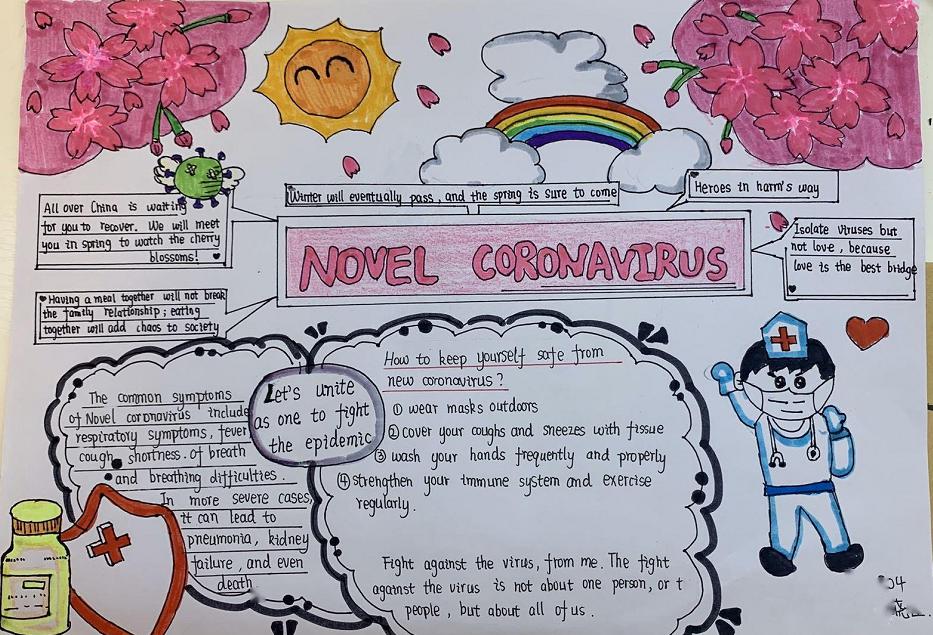 Winter will eventually pass, and the spring is sure to come
Heroes in harm's way
All over China is waiting
for you to recover. We will meet
you in spring to watch the cherry
blossoms!
NOVEL CORONAVIRUS
Isolate viruses but
not love, because
love is the best bridge
Having a meal together will not break
the family relationship; eating
together will add chaos to society
Let's unite
as one to fight
the epidemic
The common symptoms
of Novel coronavirus include
respiratory symptoms, fever
cough shortness. of breath
and breathing difficulties.
In more severe cases,
it can lead to
pneumonia, kidney
failure, and even
death
How to keep yourself safe from
new coronavirus?
① wear masks outdoors
② cover your coughs and sneezes with tissue
③ wash your hands frequently and properly
④ strengthen your immune system and exercise
regularly.
Fight against the virus, from me. The fight
against the virus is not about one person, or t
people, but about all of us.
04